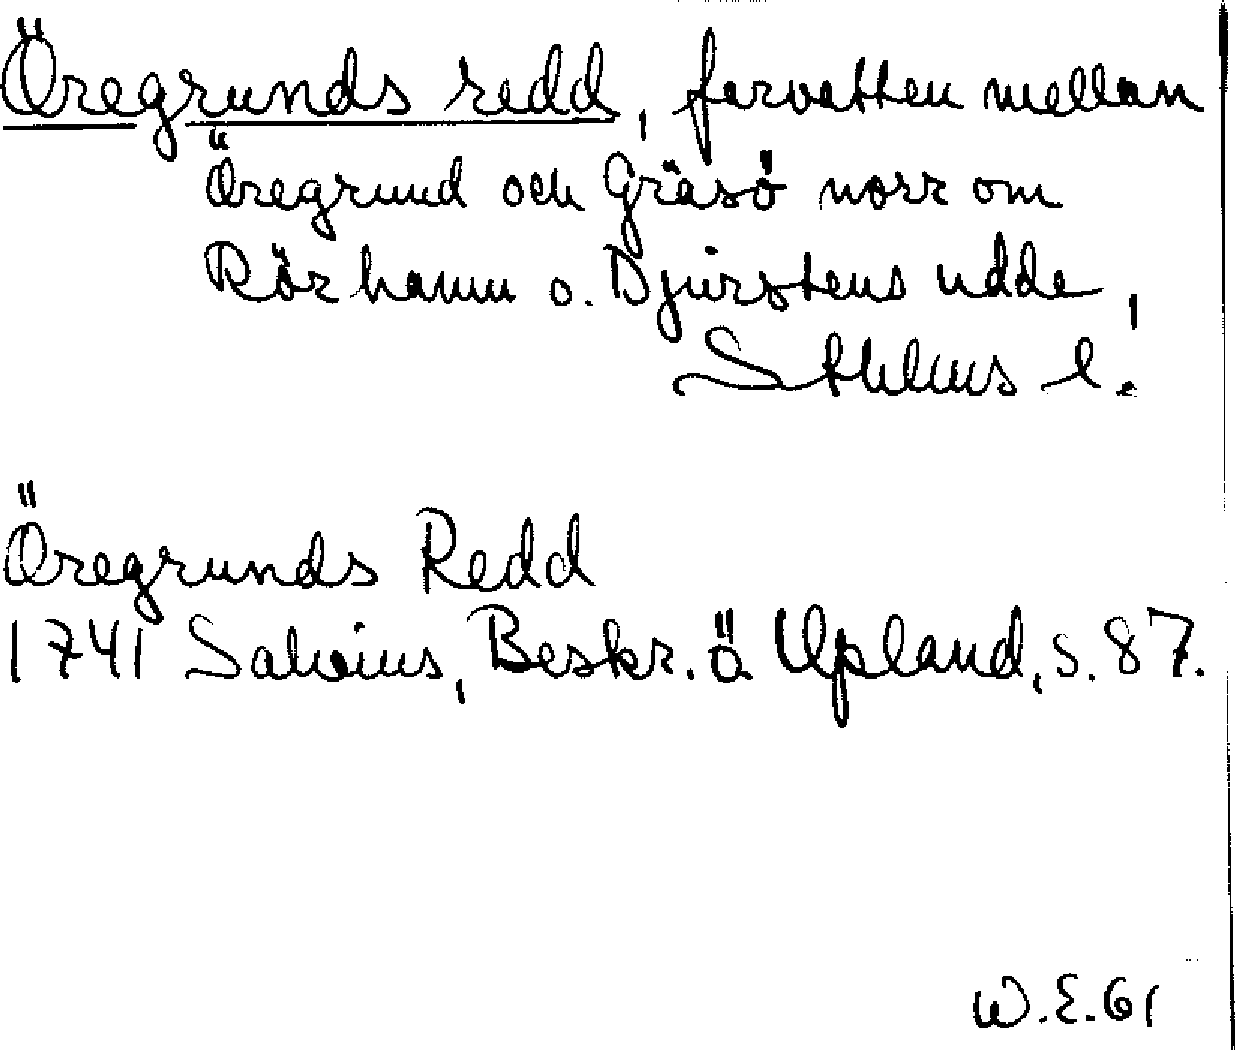 Öregrunds redd, farvatten mellan
Öregrund och Gräsö norr om
Rörhamn o. Djurstens udde,
Sthlms l.
Öregrunds Redd
1741 Salvius, Beskr. ö. Upland, s. 87.
W.E.61